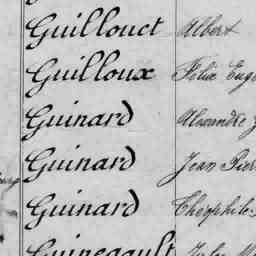 Guillouct Albert
Guilloux Félix
Guinard Alexandre
Guinard Jean
Guinard Théophile
Guinegault Jules